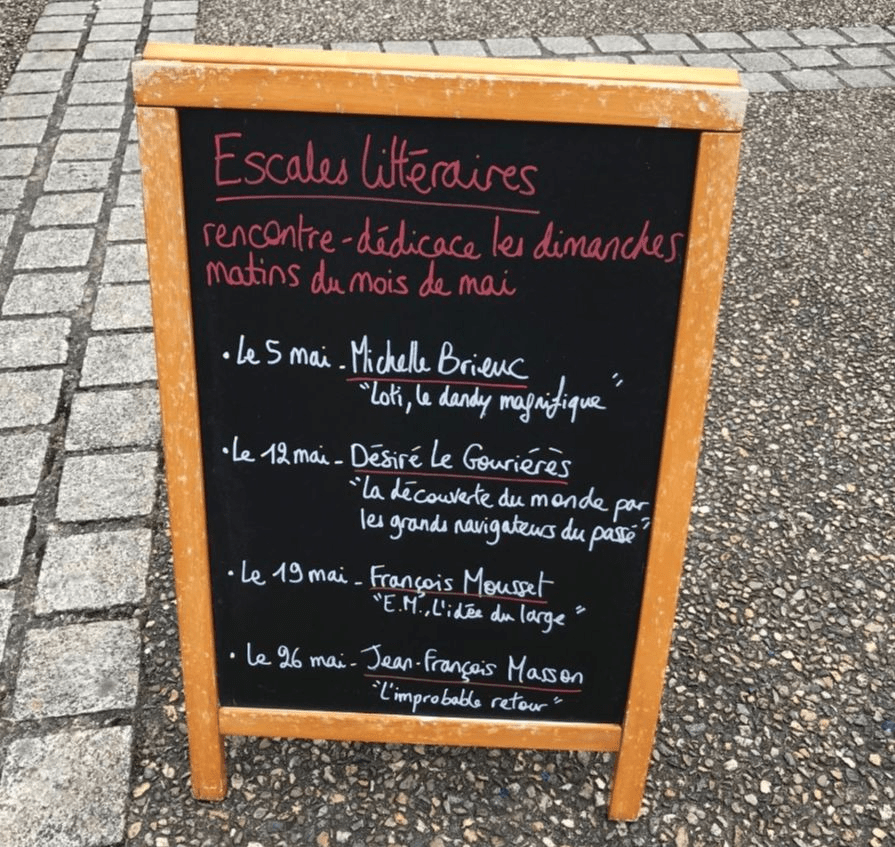 Escales littéraires
rencontre-dédicace les dimanches
matins du mois de mai
• Le 5 mai - Michelle Brieuc
"Loti, le dandy magnifique"
• Le 12 mai - Désiré Le Gouriérès
"La découverte du monde par
les grands navigateurs du passé"
• Le 19 mai - François Mousset
"E.M., L'idée du large"
• Le 26 mai - Jean-François Masson
"L'improbable retour"